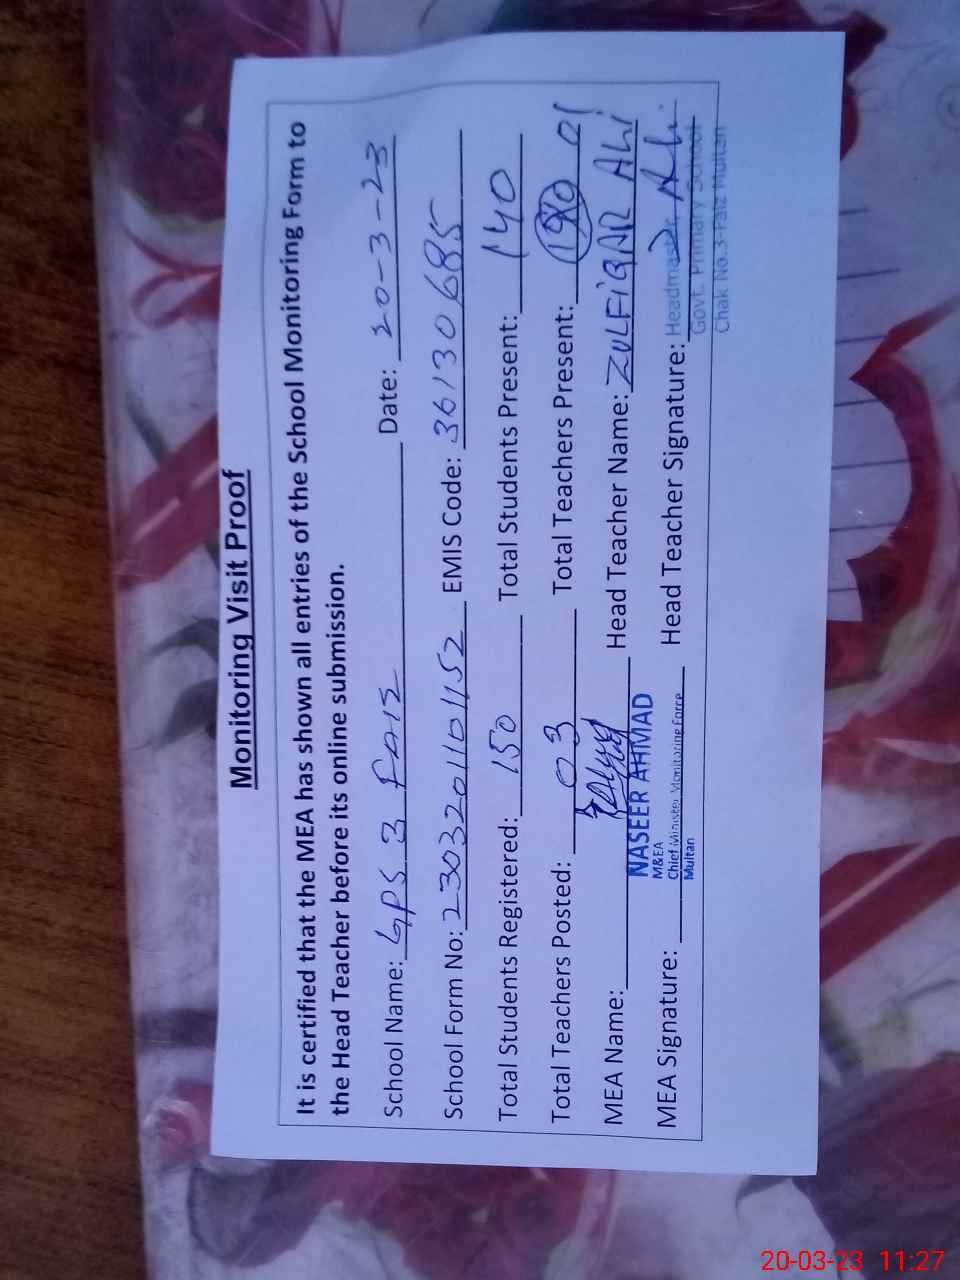 Monitoring Visit Proof
It is certified that the MEA has shown all entries of the School Monitoring Form to
the Head Teacher before its online submission.
School Name: GPS 3 FAIZ Date: 20-3-23
School Form No: 230320110152 EMIS Code: 36130685
Total Students Registered: 150 Total Students Present: 140
Total Teachers Posted: 03 Total Teachers Present: 01
MEA Name: Head Teacher Name: ZULFIQAR ALI
NASEER AHMAD
M&EA
Chief Minister Monitoring Force
Multan
MEA Signature: Head Teacher Signature: Z. Ali.
Headmaster
Govt. Primary School
Chak No.3-Faiz Multan
20-03-23 11:27